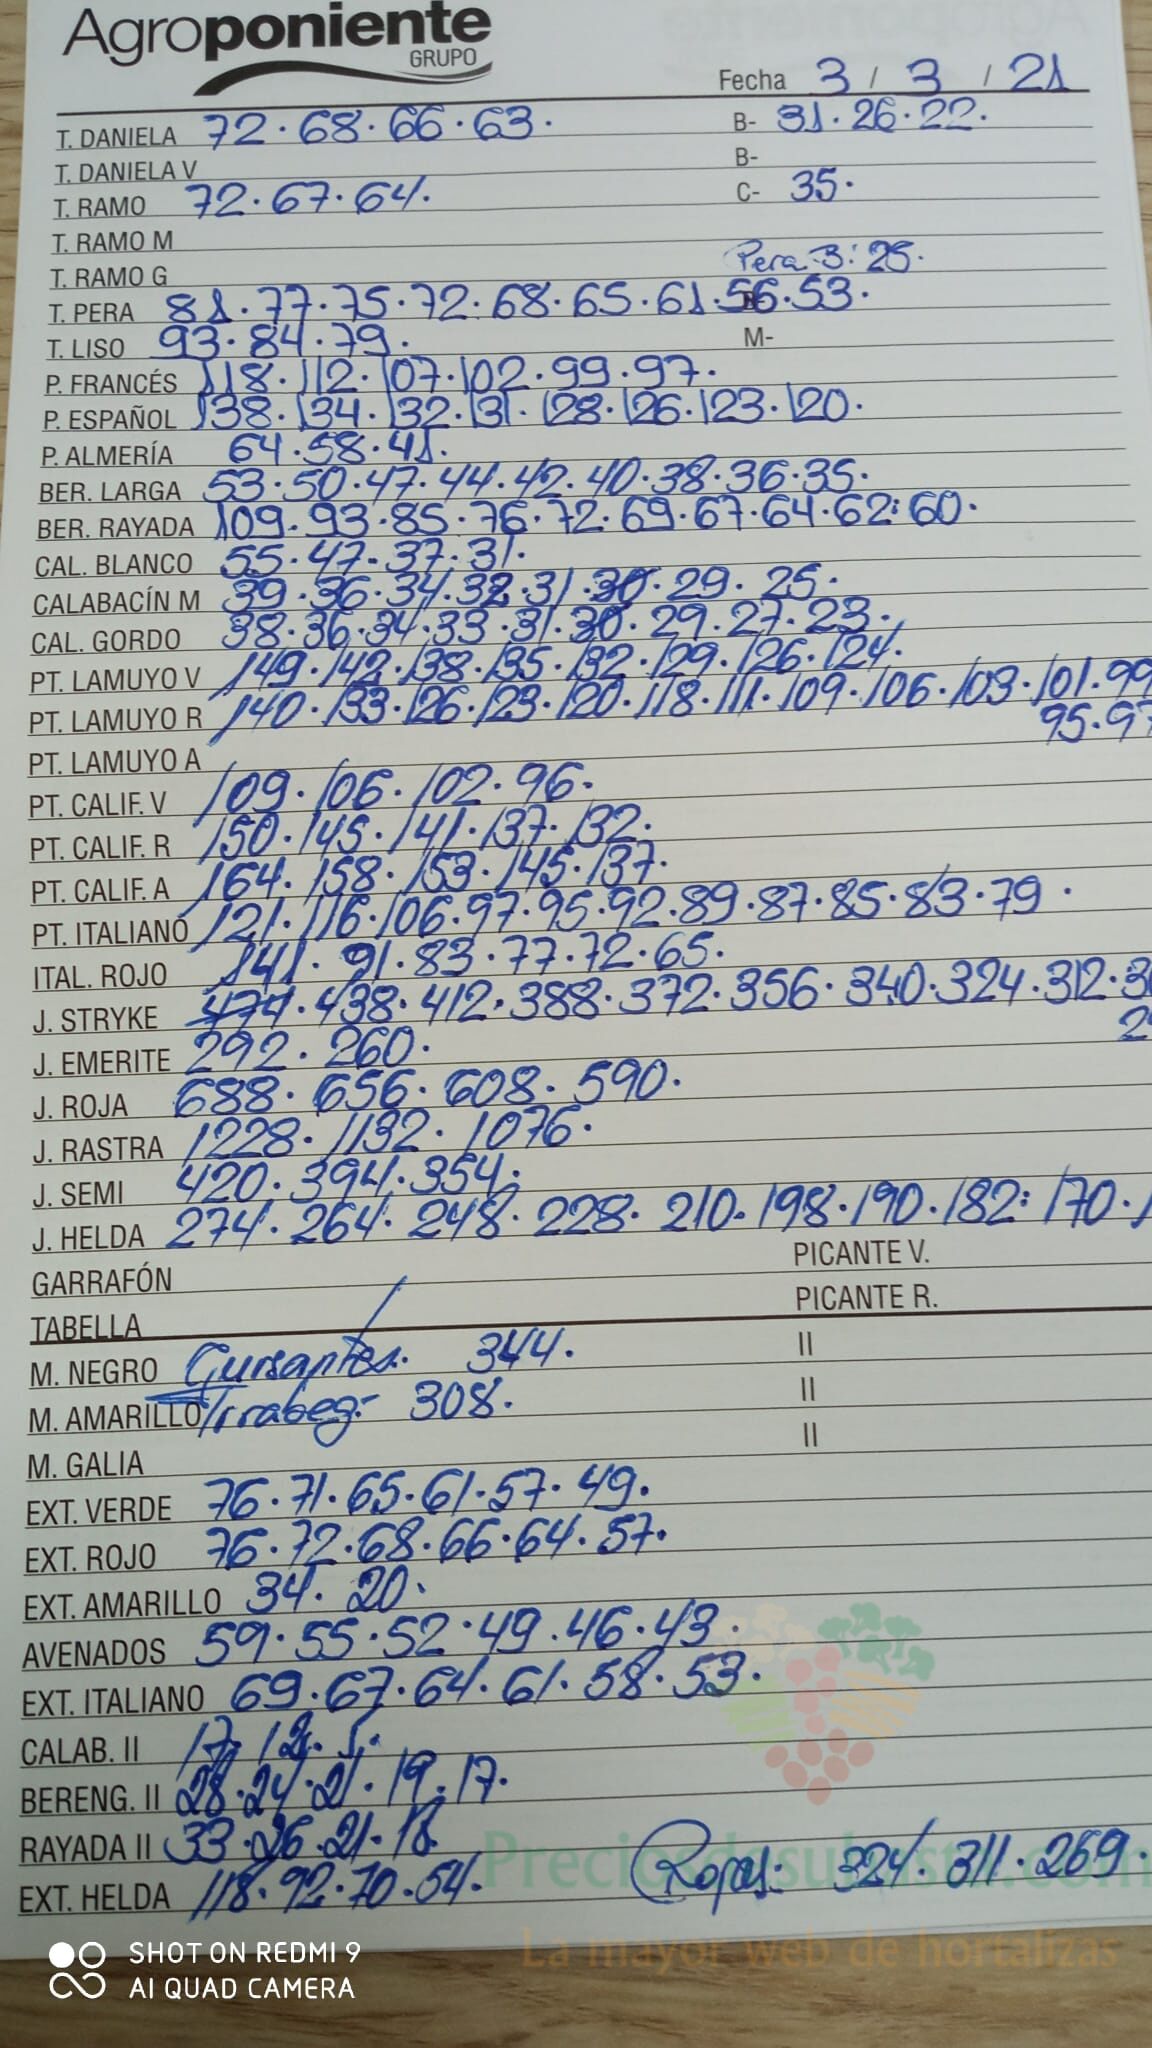 Agroponiente
GRUPO
Fecha 3 / 3 / 21
T. DANIELA 72·68·66·63· B- 31·26·22·
T. DANIELA V B-
T. RAMO 72·67·64· C- 35·
T. RAMO M
T. RAMO G Pera B: 25·
T. PERA 81·77·75·72·68·65·61·56·53·
T. LISO 93·84·79· M-
P. FRANCÉS 118·112·107·102·99·97·
P. ESPAÑOL 138·134·132·131·128·126·123·120·
P. ALMERÍA 64·58·41·
BER. LARGA 53·50·47·44·42·40·38·36·35·
BER. RAYADA 109·93·85·76·72·69·67·64·62·60·
CAL. BLANCO 55·47·37·31·
CALABACÍN M 39·36·34·32·31·30·29·25·
CAL. GORDO 38·36·34·33·31·30·29·27·23·
PT. LAMUYO V 149·142·138·135·132·129·126·124·
PT. LAMUYO R 140·133·126·123·120·118·111·109·106·103·101·99
95·97
PT. LAMUYO A
PT. CALIF. V 109·106·102·96·
PT. CALIF. R 150·145·141·137·132·
PT. CALIF. A 164·158·153·145·137·
PT. ITALIANO 121·116·106·97·95·92·89·87·85·83·79·
ITAL. ROJO 141·91·83·77·72·65·
J. STRYKE 474·438·412·388·372·356·340·324·312·
J. EMERITE 292·260·
J. ROJA 688·656·608·590·
J. RASTRA 1228·1132·1076·
J. SEMI 420·394·354·
J. HELDA 274·264·248·228·210·198·190·182·170·
GARRAFÓN PICANTE V.
TABELLA PICANTE R.
M. NEGRO Guisantes· 344· II
M. AMARILLO Tirabeq- 308· II
M. GALIA II
EXT. VERDE 76·71·65·61·57·49·
EXT. ROJO 76·72·68·66·64·57·
EXT. AMARILLO 34·20·
AVENADOS 59·55·52·49·46·43·
EXT. ITALIANO 69·67·64·61·58·53·
CALAB. II 17·12·5·
BERENG. II 28·24·21·19·17·
RAYADA II 33·26·21·18·
EXT. HELDA 118·92·70·54· Rojas: 324·311·269·
Preciosdesubasta.com
La mayor web de hortalizas
SHOT ON REDMI 9
AI QUAD CAMERA